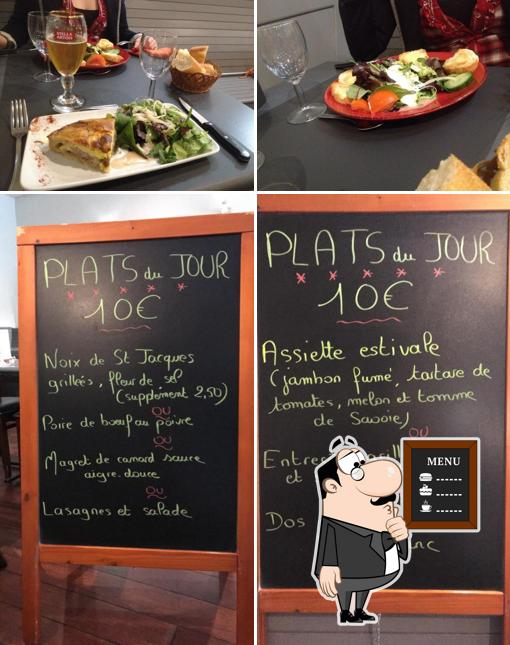 STELLA ARTOIS
PLATS du JOUR
10€
Noix de St Jacques
grillées, fleur de sel
(supplément 2,50)
OU
Poire de bœuf au poivre
OU
Magret de canard sauce
aigre-douce
OU
Lasagnes et salade
PLATS du JOUR
10€
Assiette estivale
(jambon fumé, tartare de
tomates, melon et tomme
de Savoie)
OU
et
Dos
MENU